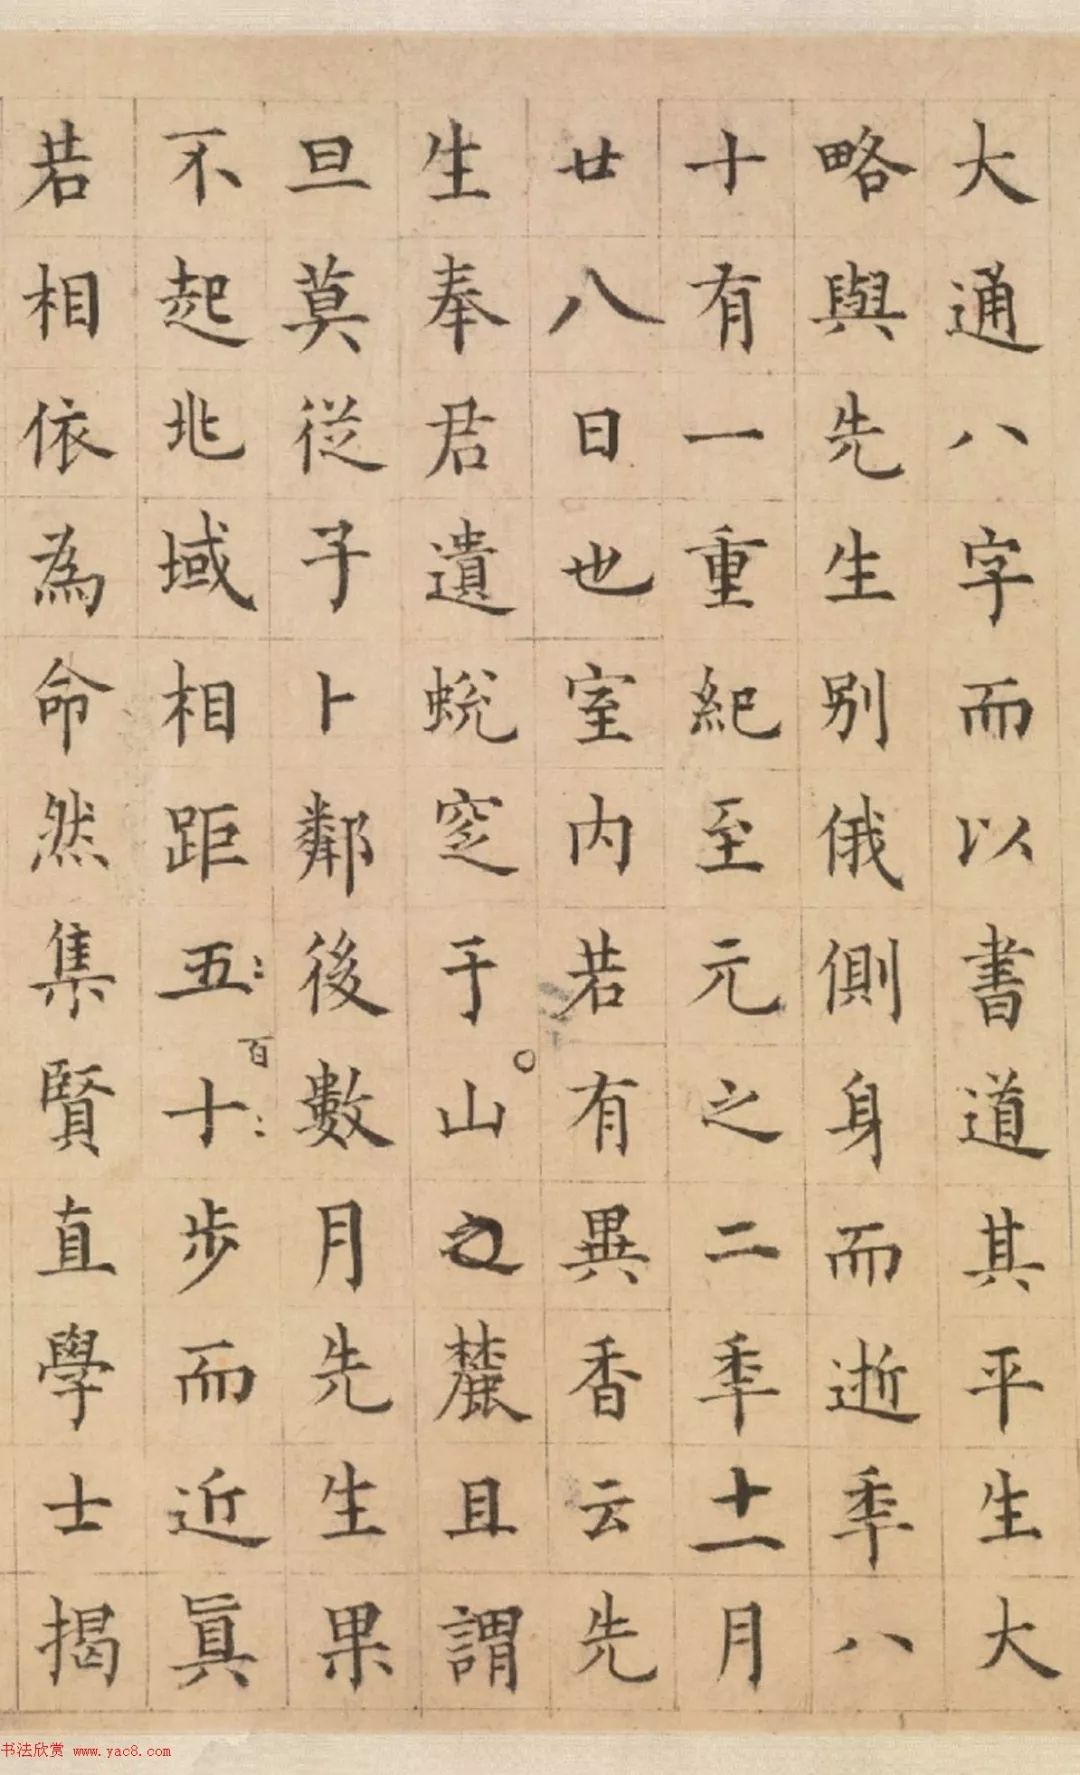 大通八字而以書道其平生大
略與先生别俄側身而逝秊八
十有一重紀至元之二秊十一月
廿八日也室内若有異香云先
生奉君遺蛻窆于山之麓且謂
旦莫從子卜鄰後數月先生果
不起兆域相距五十百步而近眞
若相依為命然集賢直學士揭
书法欣赏 www.yac8.com